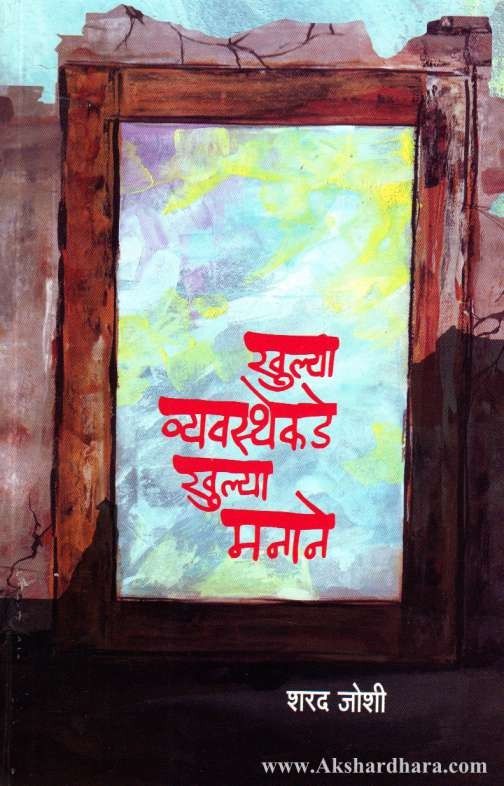 खुल्या
व्यवस्थेकडे
खुल्या
मनाने
शरद जोशी
www.Akshardhara.com